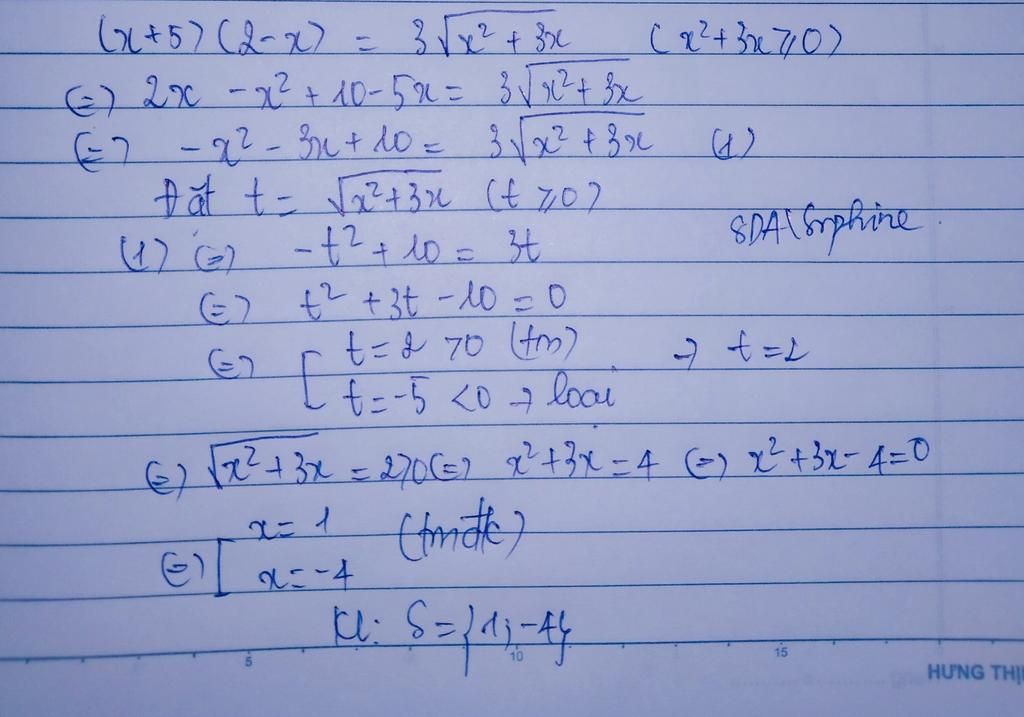 (x+5)(2-x) = 3√(x²+3x) (x²+3x ⩾ 0)
(=) 2x - x² + 10 - 5x = 3√(x²+3x)
(=) - x² - 3x + 10 = 3√(x²+3x) (1)
Đặt t = √(x²+3x) (t ⩾ 0)
(1) (=) -t² + 10 = 3t
(=) t² + 3t - 10 = 0
(=) [ t = 2 > 0 (tm) → t = 2
t = -5 < 0 → loại
(=) √(x²+3x) = 2 > 0 (=) x² + 3x = 4 (=) x² + 3x - 4 = 0
(=) [ x = 1 (tmđk)
x = -4
Kl: S = {1; -4}
5 10 15
HƯNG THỊ